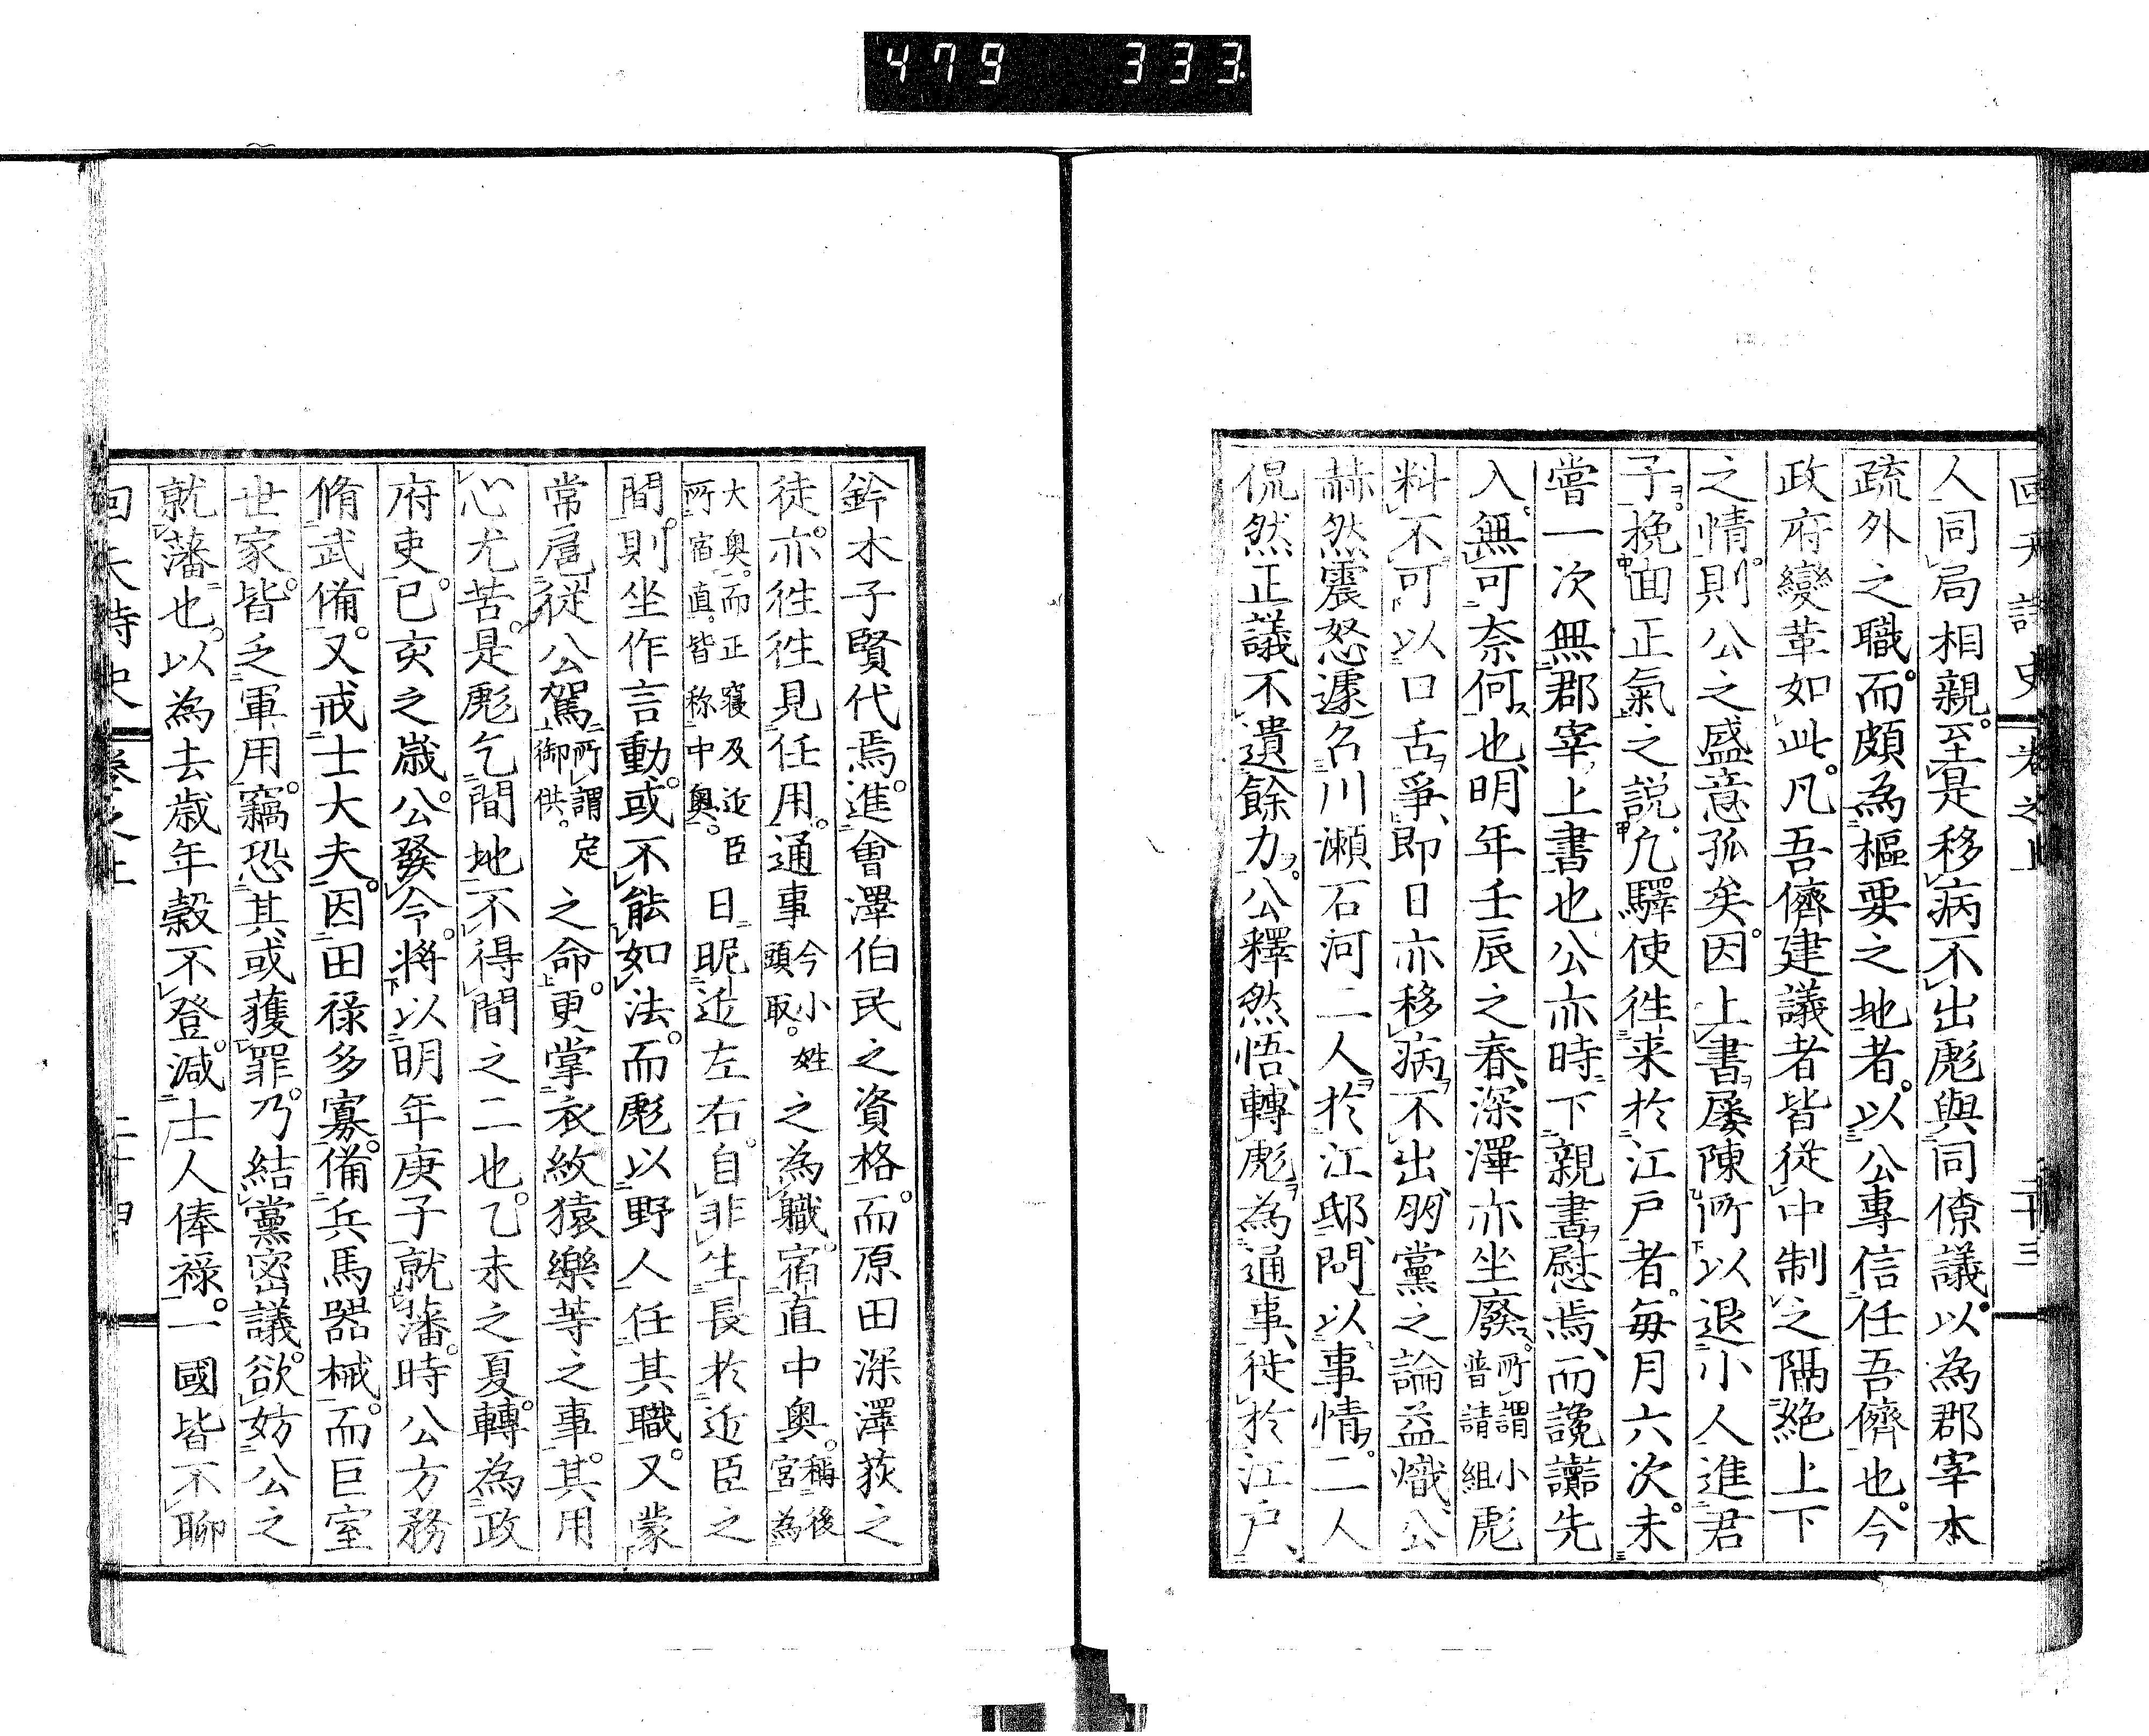 479 333
回天詩史 卷之上 二十三
人同局相親。至是移病不出彪與同僚議。以為郡宰本
疏外之職。而頗為樞要之地者。以公專信任吾儕也。今
政府變革如此。凡吾儕建議者皆從中制之隔絶上下
之情。則公之盛意孤矣。因上書屡陳所以退小人進君
子。挽面正氣之説。凢驛使徃来於江戸者。每月六次。未
嘗一次無郡宰上書也。公亦時下親書慰焉、而讒讟先
入、無可奈何也、明年壬辰之春、深澤亦坐廢。所謂小普請組彪
料不可以口舌爭、即日亦移病不出、朋黨之論益熾、公
赫然震怒遽召川瀬石河二人於江邸、問以事情。二人
侃然正議不遺餘力。公釋然悟、轉彪為通事、徙於江戸、
鈴木子賢代焉。進會澤伯民之資格。而原田深澤荻之
徒。亦徃徃見任用。通事今小姓頭取。之為職。宿直中奥。稱後宮為
大奥。而正寝及近臣所宿直。皆称中奥。日昵近左右。自非生長於近臣之
間。則坐作言動。或不能如法。而彪以野人任其職。又蒙
常扈從公駕所謂定御供。之命。更掌衣紋猿樂等之事。其用
心尤苦。是彪乞間地不得間之二也。乙未之夏。轉為政
府吏。已亥之歳。公發令。將以明年庚子就藩。時公方務
脩武備。又戒士大夫。因田禄多寡。備兵馬器械。而巨室
世家。皆乏軍用。竊恐其或獲罪。乃結黨密議。欲妨公之
就藩也。以為去歳年穀不登。減士人俸禄。一國皆不聊
回天詩史 卷之上 二十四